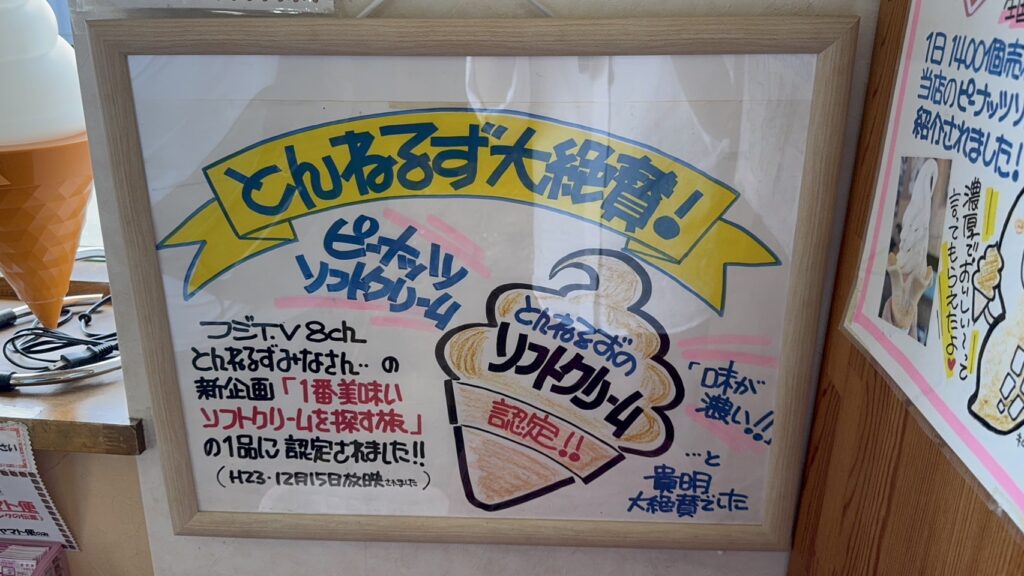 とんねるず大絶賛!
ピーナッツ
ソフトクリーム
フジT.V 8ch
とんねるずみなさん…の
新企画「1番美味い
ソフトクリームを探す旅」
の1品に認定されました!!
(H23・12月15日放映されました)
とんねるずの
ソフトクリーム
認定!!
「味が
濃い!!」
…と
貴明
大絶賛でした
1日1400個売
当店のピーナッツソ
紹介されました!
濃厚でおいしい〜って
言ってもらえたよ♥
さい
ヤマト便